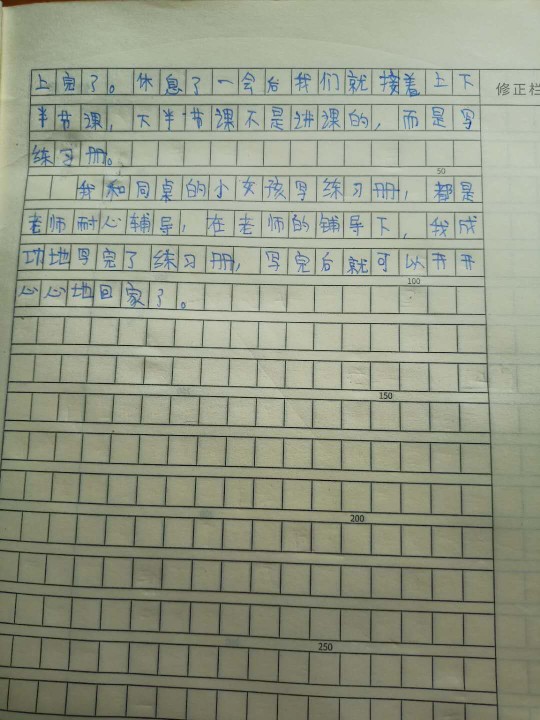 上完了。休息了一会后我们就接着上下
修正栏
半节课，下半节课不是讲课的，而是写
练习册。
50
我和同桌的小女孩写练习册，都是
老师耐心辅导，在老师的辅导下，我成
功地写完了练习册，写完后就可以开开
100
心心地回家了。
150
200
250